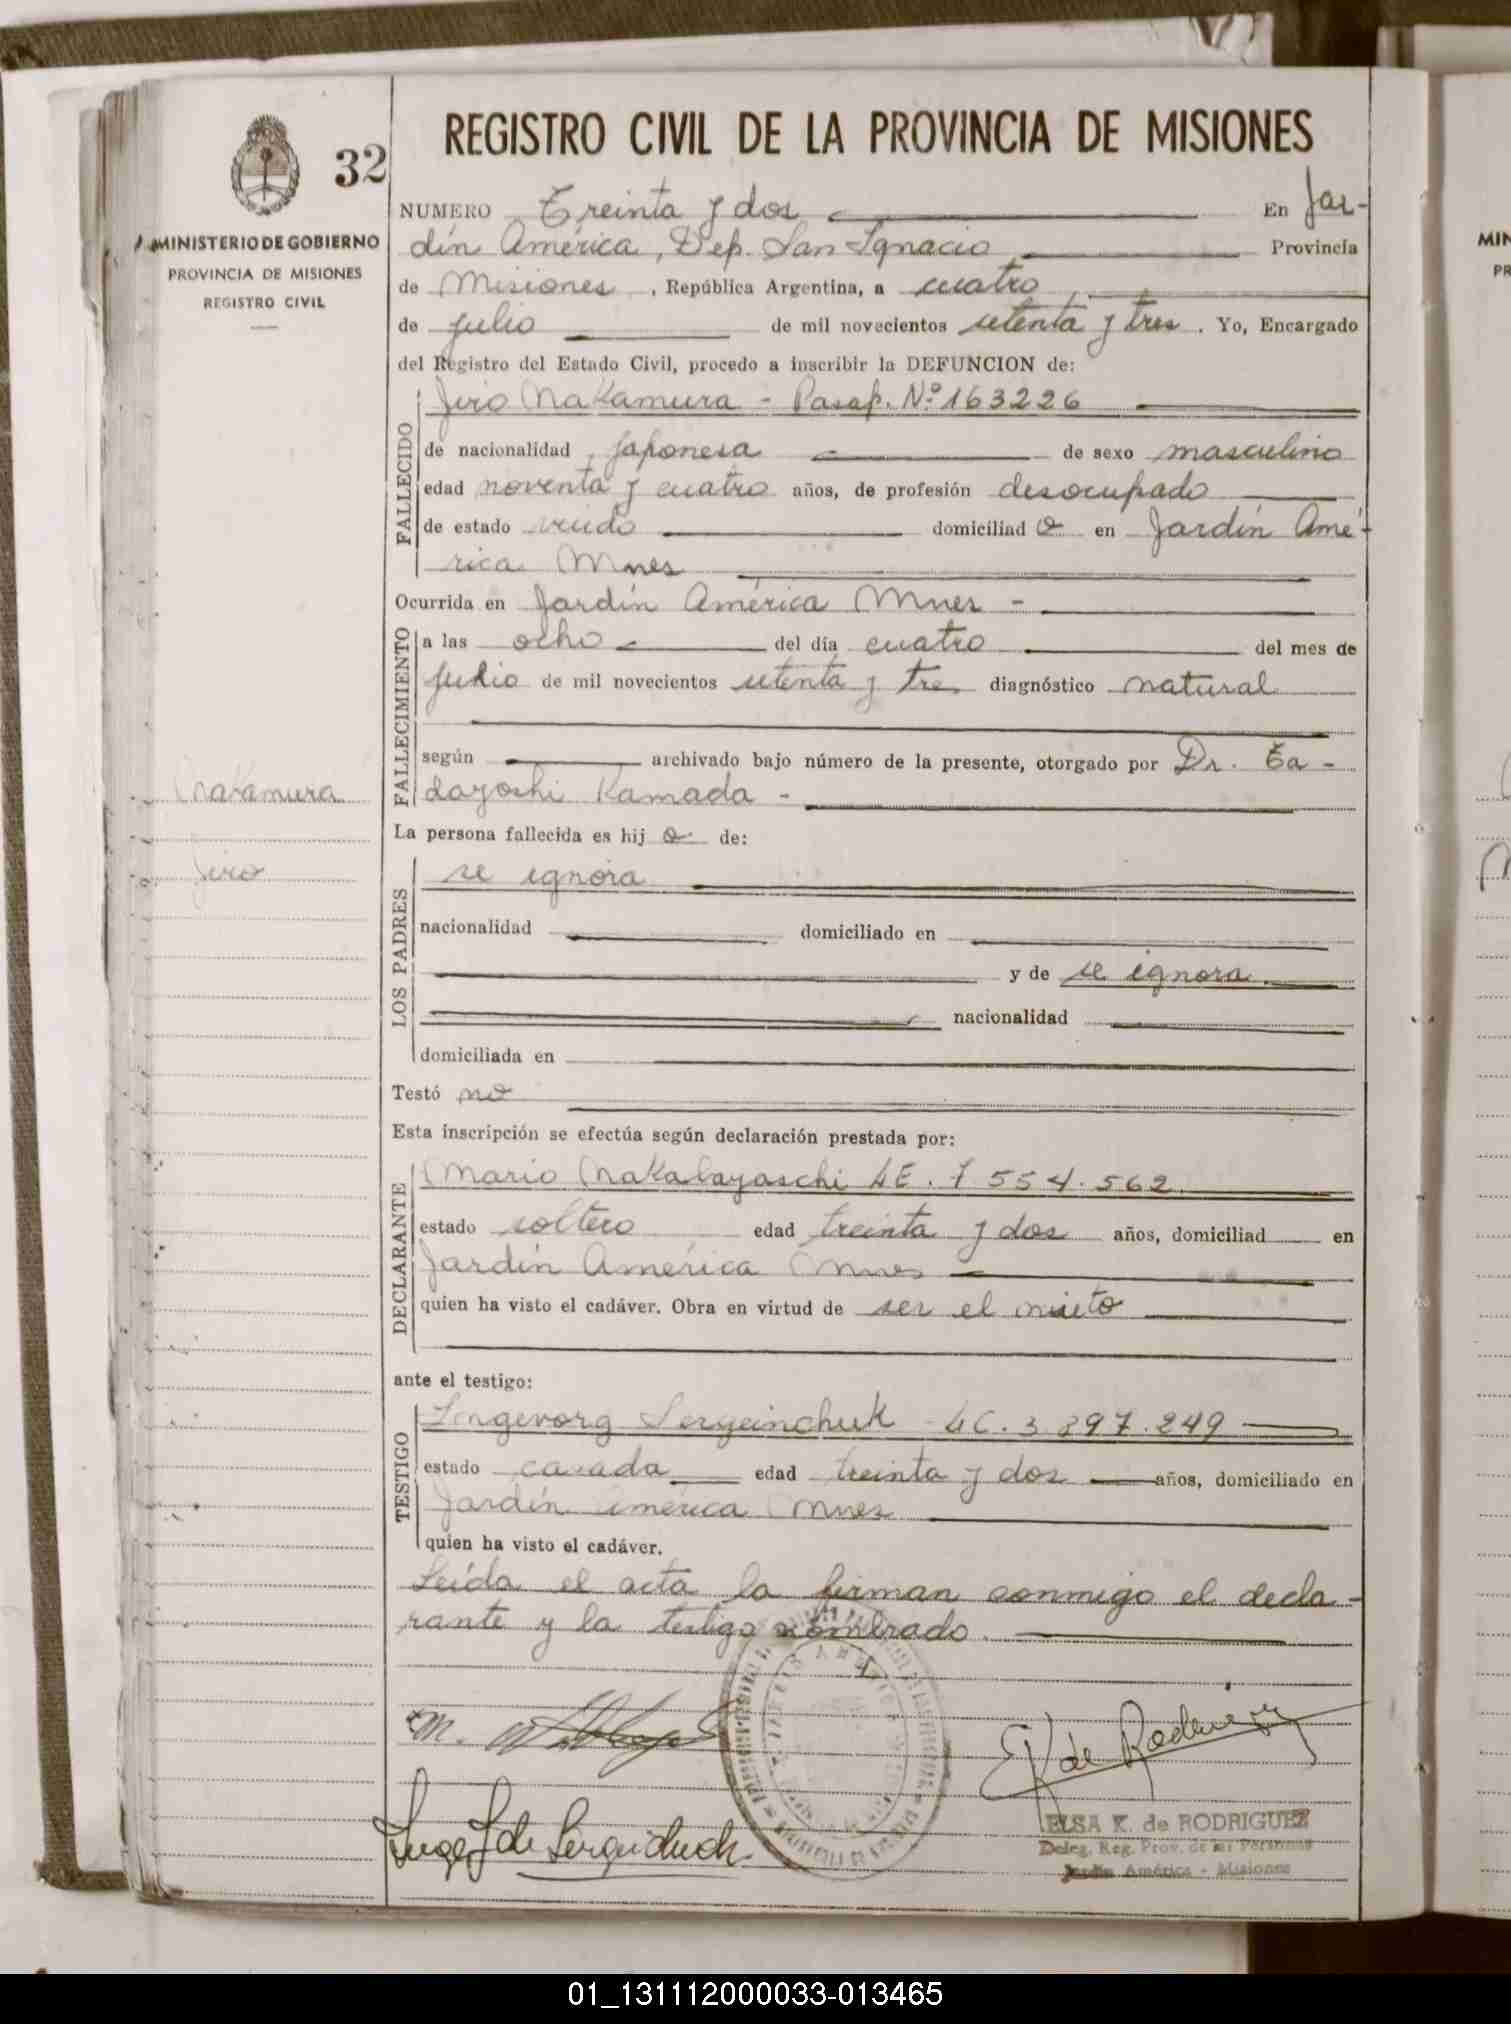 REGISTRO CIVIL DE LA PROVINCIA DE MISIONES
32
MINISTERIO DE GOBIERNO
PROVINCIA DE MISIONES
REGISTRO CIVIL
NUMERO Treinta y dos En Jar-
dín América, Dep. San Ignacio Provincia
de Misiones, República Argentina, a cuatro
de julio de mil novecientos setenta y tres. Yo, Encargado
del Registro del Estado Civil, procedo a inscribir la DEFUNCION de:
FALLECIDO
Jiro Nakamura - Pasap. Nº 163226
de nacionalidad japonesa de sexo masculino
edad noventa y cuatro años, de profesión desocupado
de estado viudo domiciliad o en Jardín Amé-
rica Mnes
Ocurrida en Jardín América Mnes -
FALLECIMIENTO
a las ocho del día cuatro del mes de
julio de mil novecientos setenta y tres diagnóstico natural
según archivado bajo número de la presente, otorgado por Dr. Ta-
dayoshi Kamada -
Nakamura
Jiro
La persona fallecida es hij o de:
LOS PADRES
se ignora
nacionalidad domiciliado en
y de se ignora
nacionalidad
domiciliada en
Testó no
Esta inscripción se efectúa según declaración prestada por:
DECLARANTE
Mario Nakabayaschi LE. 7 554.562
estado soltero edad treinta y dos años, domiciliad en
Jardín América Mnes
quien ha visto el cadáver. Obra en virtud de ser el nieto
ante el testigo:
TESTIGO
Ingevorg Sergeinchuk LC. 3.897.249
estado casada edad treinta y dos años, domiciliado en
Jardín América Mnes
quien ha visto el cadáver.
Leída el acta la firman conmigo el decla-
rante y la testigo nombrado.
E K de Rodriguez
ELSA K. de RODRIGUEZ
Deleg. Reg. Prov. de las Personas
Jardín América - Misiones
01_131112000033-013465